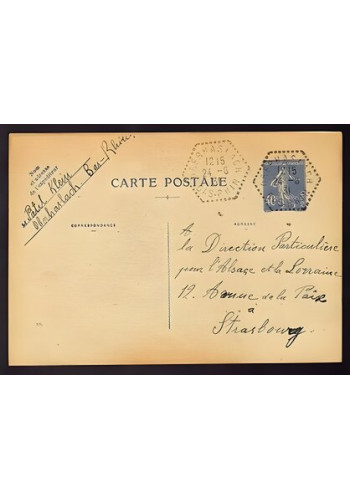 Nom
et adresse
de l'expéditeur
M. Paul Klein
Oberhaslach Bas-Rhin
OBERHASLACH
12 15
24 -8
BAS-RHIN
CARTE POSTALE
CORRESPONDANCE
ADRESSE
A
la Direction Particulière
pour l'Alsace et la Lorraine
12, Avenue de la Paix
à
Strasbourg